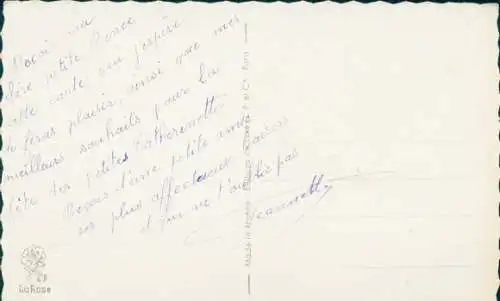 Voici ma
chère petite
cette carte qui j'espère
te feras plaisir, ainsi que mes
meilleurs souhaits pour la
fête des petites Catherinette
Reçois d'une petite amie
ses plus affectueux baisers
et qui ne t'oublie pas
Jeannette
Made in
Paris
LaRose